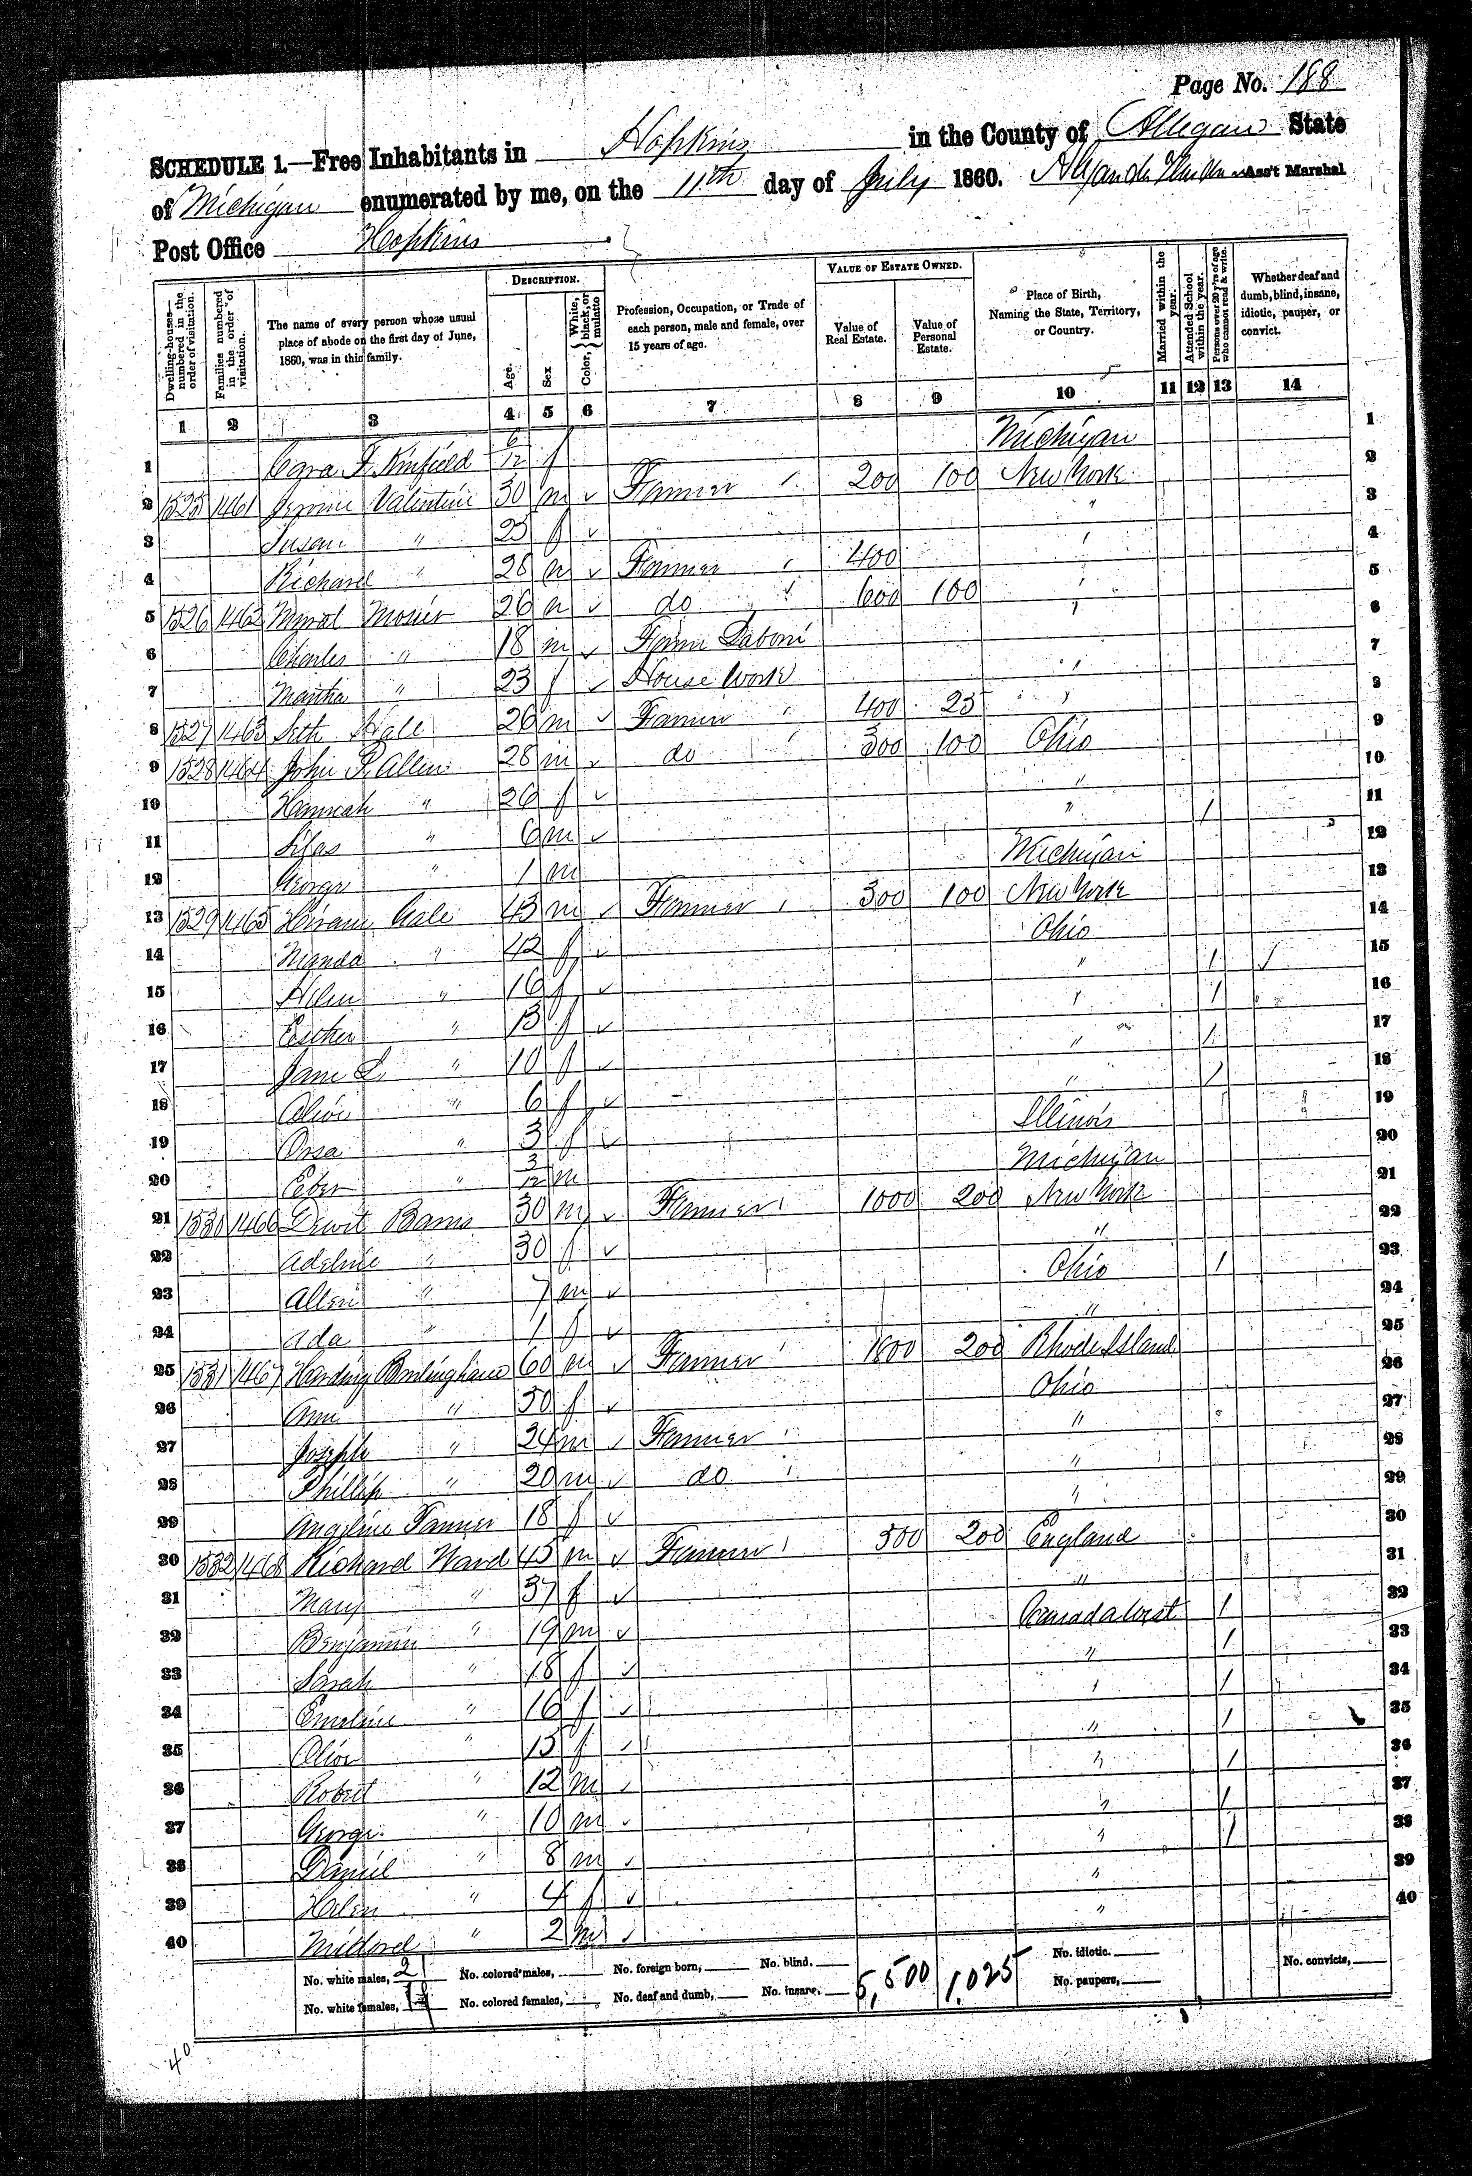 Page No. 188
SCHEDULE 1.—Free Inhabitants in Hopkins in the County of Allegan State
of Michigan enumerated by me, on the 11th day of July 1860. Ass't Marshal
Post Office Hopkins
DESCRIPTION. VALUE OF ESTATE OWNED.
Dwelling-houses—numbered in the order of visitation. Families numbered in the order of visitation. The name of every person whose usual place of abode on the first day of June, 1860, was in this family. Age. Sex Color, {White, black, or mulatto Profession, Occupation, or Trade of each person, male and female, over 15 years of age. Value of Real Estate. Value of Personal Estate. Place of Birth, Naming the State, Territory, or Country. Married within the year. Attended School within the year. Persons over 20 y'rs of age who cannot read & write. Whether deaf and dumb, blind, insane, idiotic, pauper, or convict.
1 2 3 4 5 6 7 8 9 10 11 12 13 14
1 F. 6/12 f Michigan 1
2 1525 1461 Valentine 30 m ✓ Farmer 200 100 New York 2
3 Susan " 25 f ✓ " 3
4 Richard " 28 m ✓ Farmer 400 " 4
5 1526 1462 Mosier 26 m ✓ do 600 100 " 5
6 Charles " 18 m ✓ Farm " 6
7 Martha " 23 f ✓ House Work " 7
8 1527 1463 Seth Hale 26 m ✓ Farmer 400 25 " 8
9 1528 1464 John Allen 28 m ✓ do 300 100 Ohio 9
10 Hannah " 26 f ✓ " 10
11 Silas " 6 m ✓ " 1 11
12 George " 1 m Michigan 12
13 1529 1465 Hiram 43 m ✓ Farmer 300 100 New York 13
14 Manda " 42 f ✓ Ohio 14
15 Helen " 16 f ✓ " 1 ✓ 15
16 Esther " 13 f ✓ " 1 16
17 Jane L. " 10 f ✓ " 1 17
18 Olive " 6 f ✓ " 1 18
19 Orsa " 3 f ✓ Illinois 19
20 Eber " 3/12 m Michigan 20
21 1530 1466 Dewit Barns 30 m ✓ Farmer 1000 200 New York 21
22 Adeline " 30 f ✓ " 22
23 Allen " 7 m ✓ Ohio 1 23
24 Ada " 1 f ✓ " 24
25 1531 1467 Harding Burlingham 60 m ✓ Farmer 1800 200 Rhode Island 25
26 Ann " 50 f ✓ Ohio 26
27 Joseph " 24 m ✓ Farmer " 27
28 Phillip " 20 m ✓ do " 28
29 Angeline Tanner 18 f ✓ " 29
30 1532 1468 Richard Ward 45 m ✓ Farmer 500 200 England 30
31 Mary " 37 f ✓ " 31
32 Benjamin " 19 m ✓ Canada West 1 32
33 Sarah " 18 f ✓ " 1 33
34 Emeline " 16 f ✓ " 1 34
35 Olive " 15 f ✓ " 1 35
36 Robert " 12 m ✓ " 1 36
37 George " 10 m ✓ " 1 37
38 Daniel " 8 m ✓ " 1 38
39 Helen " 4 f ✓ " 39
40 " 2 m ✓ " 40
No. white males, 21 No. colored males, No. foreign born, No. blind, 5,500 1,025 No. idiotic. No. convicts,
No. white females, 19 No. colored females, No. deaf and dumb, No. insane, No. paupers,
40